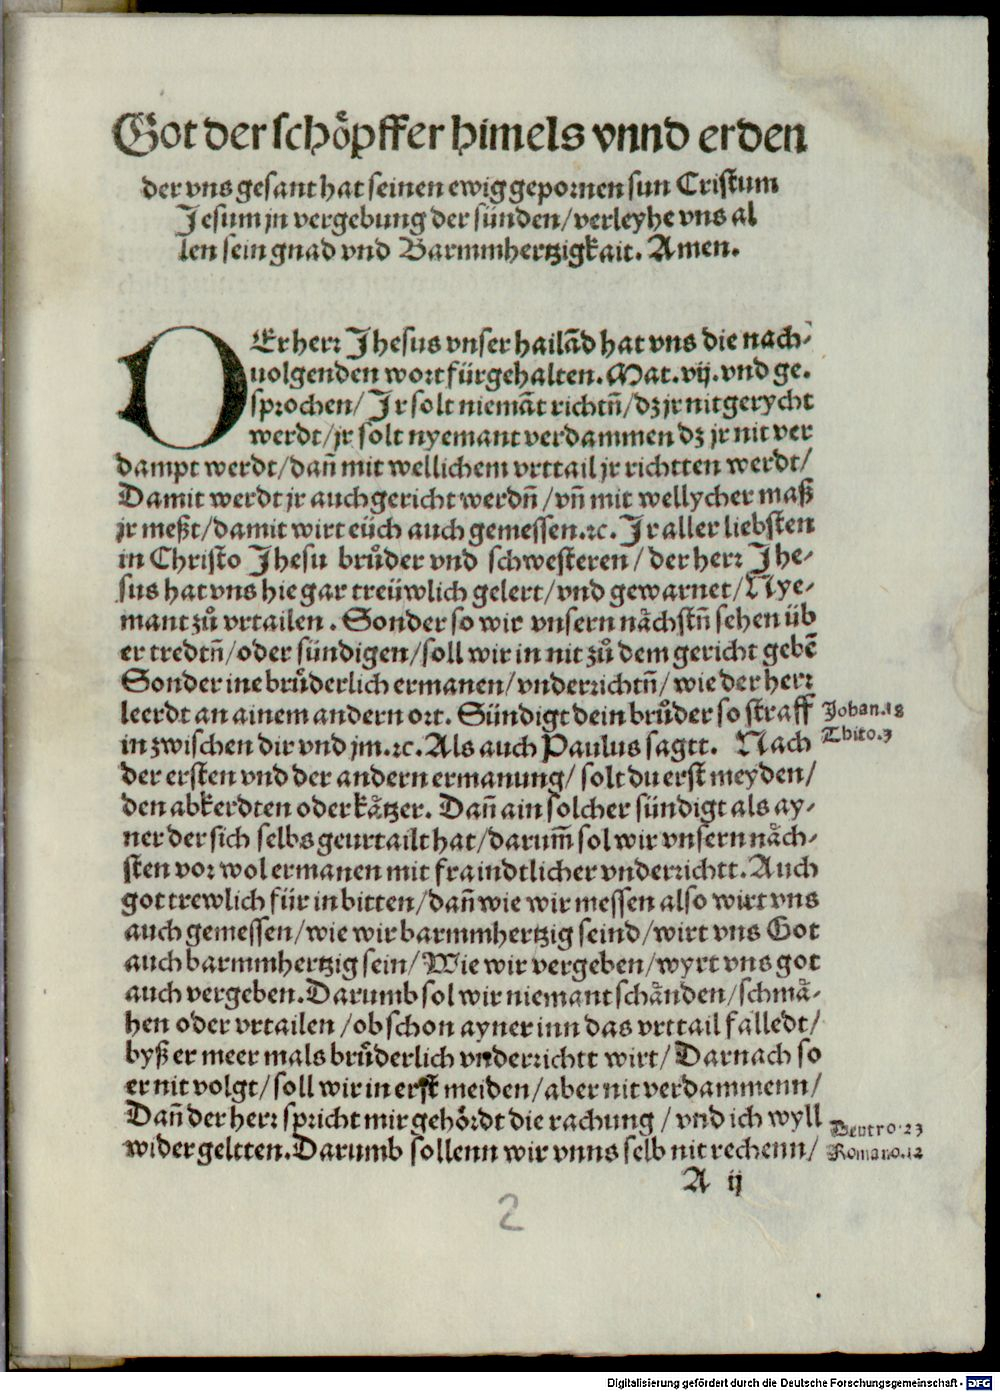 Got der schoͤpffer himels vnnd erden
der vns gesant hat seinen ewig gepornen sun Cristum
Jesum jn vergebung der sünden/verleyhe vns al
len sein gnad vnd Barmmhertzigkait. Amen.
OEr herr Jhesus vnser hailād hat vns die nach-
uolgenden wort fürgehalten. Mat. vij. vnd ge.
sprochen/ Jr solt niemāt richtn̄/dz jr nit gerycht
werdt/jr solt nyemant verdammen dz jr nit ver
dampt werdt/dan̄ mit wellichem vrttail jr richtten werdt/
Damit werdt jr auch gericht werdn̄/vn̄ mit wellycher maß
jr meßt/damit wirt eüch auch gemessen.ꝛc. Jr aller liebsten
in Christo Jhesu bruͤder vnd schwesteren/der herr Jhe-
sus hat vns hie gar treüwlich gelert/vnd gewarnet/Nye-
mant zuͦ vrtailen. Sonder so wir vnsern naͤchstn̄ sehen üb
er tredtn̄/oder sündigen/soll wir in nit zuͦ dem gericht gebē
Sonder ine bruͤderlich ermanen/vnderrichtn̄/wie der herr
leerdt an ainem andern ort. Sündigt dein bruͤder so straff
in zwischen dir vnd jm.ꝛc. Als auch Paulus sagtt. Nach
der ersten vnd der andern ermanung/ solt du erst meyden/
den abkerdten oder kaͤtzer. Dan̄ ain solcher sündigt als ay-
ner der sich selbs geurtailt hat/darum̄ sol wir vnsern naͤch-
sten vor wol ermanen mit fraindtlicher vnderrichtt. Auch
got trewlich für in bitten/dan̄ wie wir messen also wirt vns
auch gemessen/wie wir barmmhertzig seind/wirt vns Got
auch barmmhertzig sein/Wie wir vergeben/wyrt vns got
auch vergeben. Darumb sol wir niemant schaͤnden/schmaͤ-
hen oder vrtailen/ob schon ayner inn das vrttail falledt/
byß er meer mals bruͤderlich vnderrichtt wirt/Darnach so
er nit volgt/soll wir in erst meiden/aber nit verdammenn/
Dan̄ der herr spricht mir gehoͤrdt die rachung/vnd ich wyll
wider geltten. Darumb sollenn wir vnns selb nit rechenn/
Johan.18
Thito.3
Deutro.23
Romano.12
A ij
2
Digitalisierung gefördert durch die Deutsche Forschungsgemeinschaft - DFG